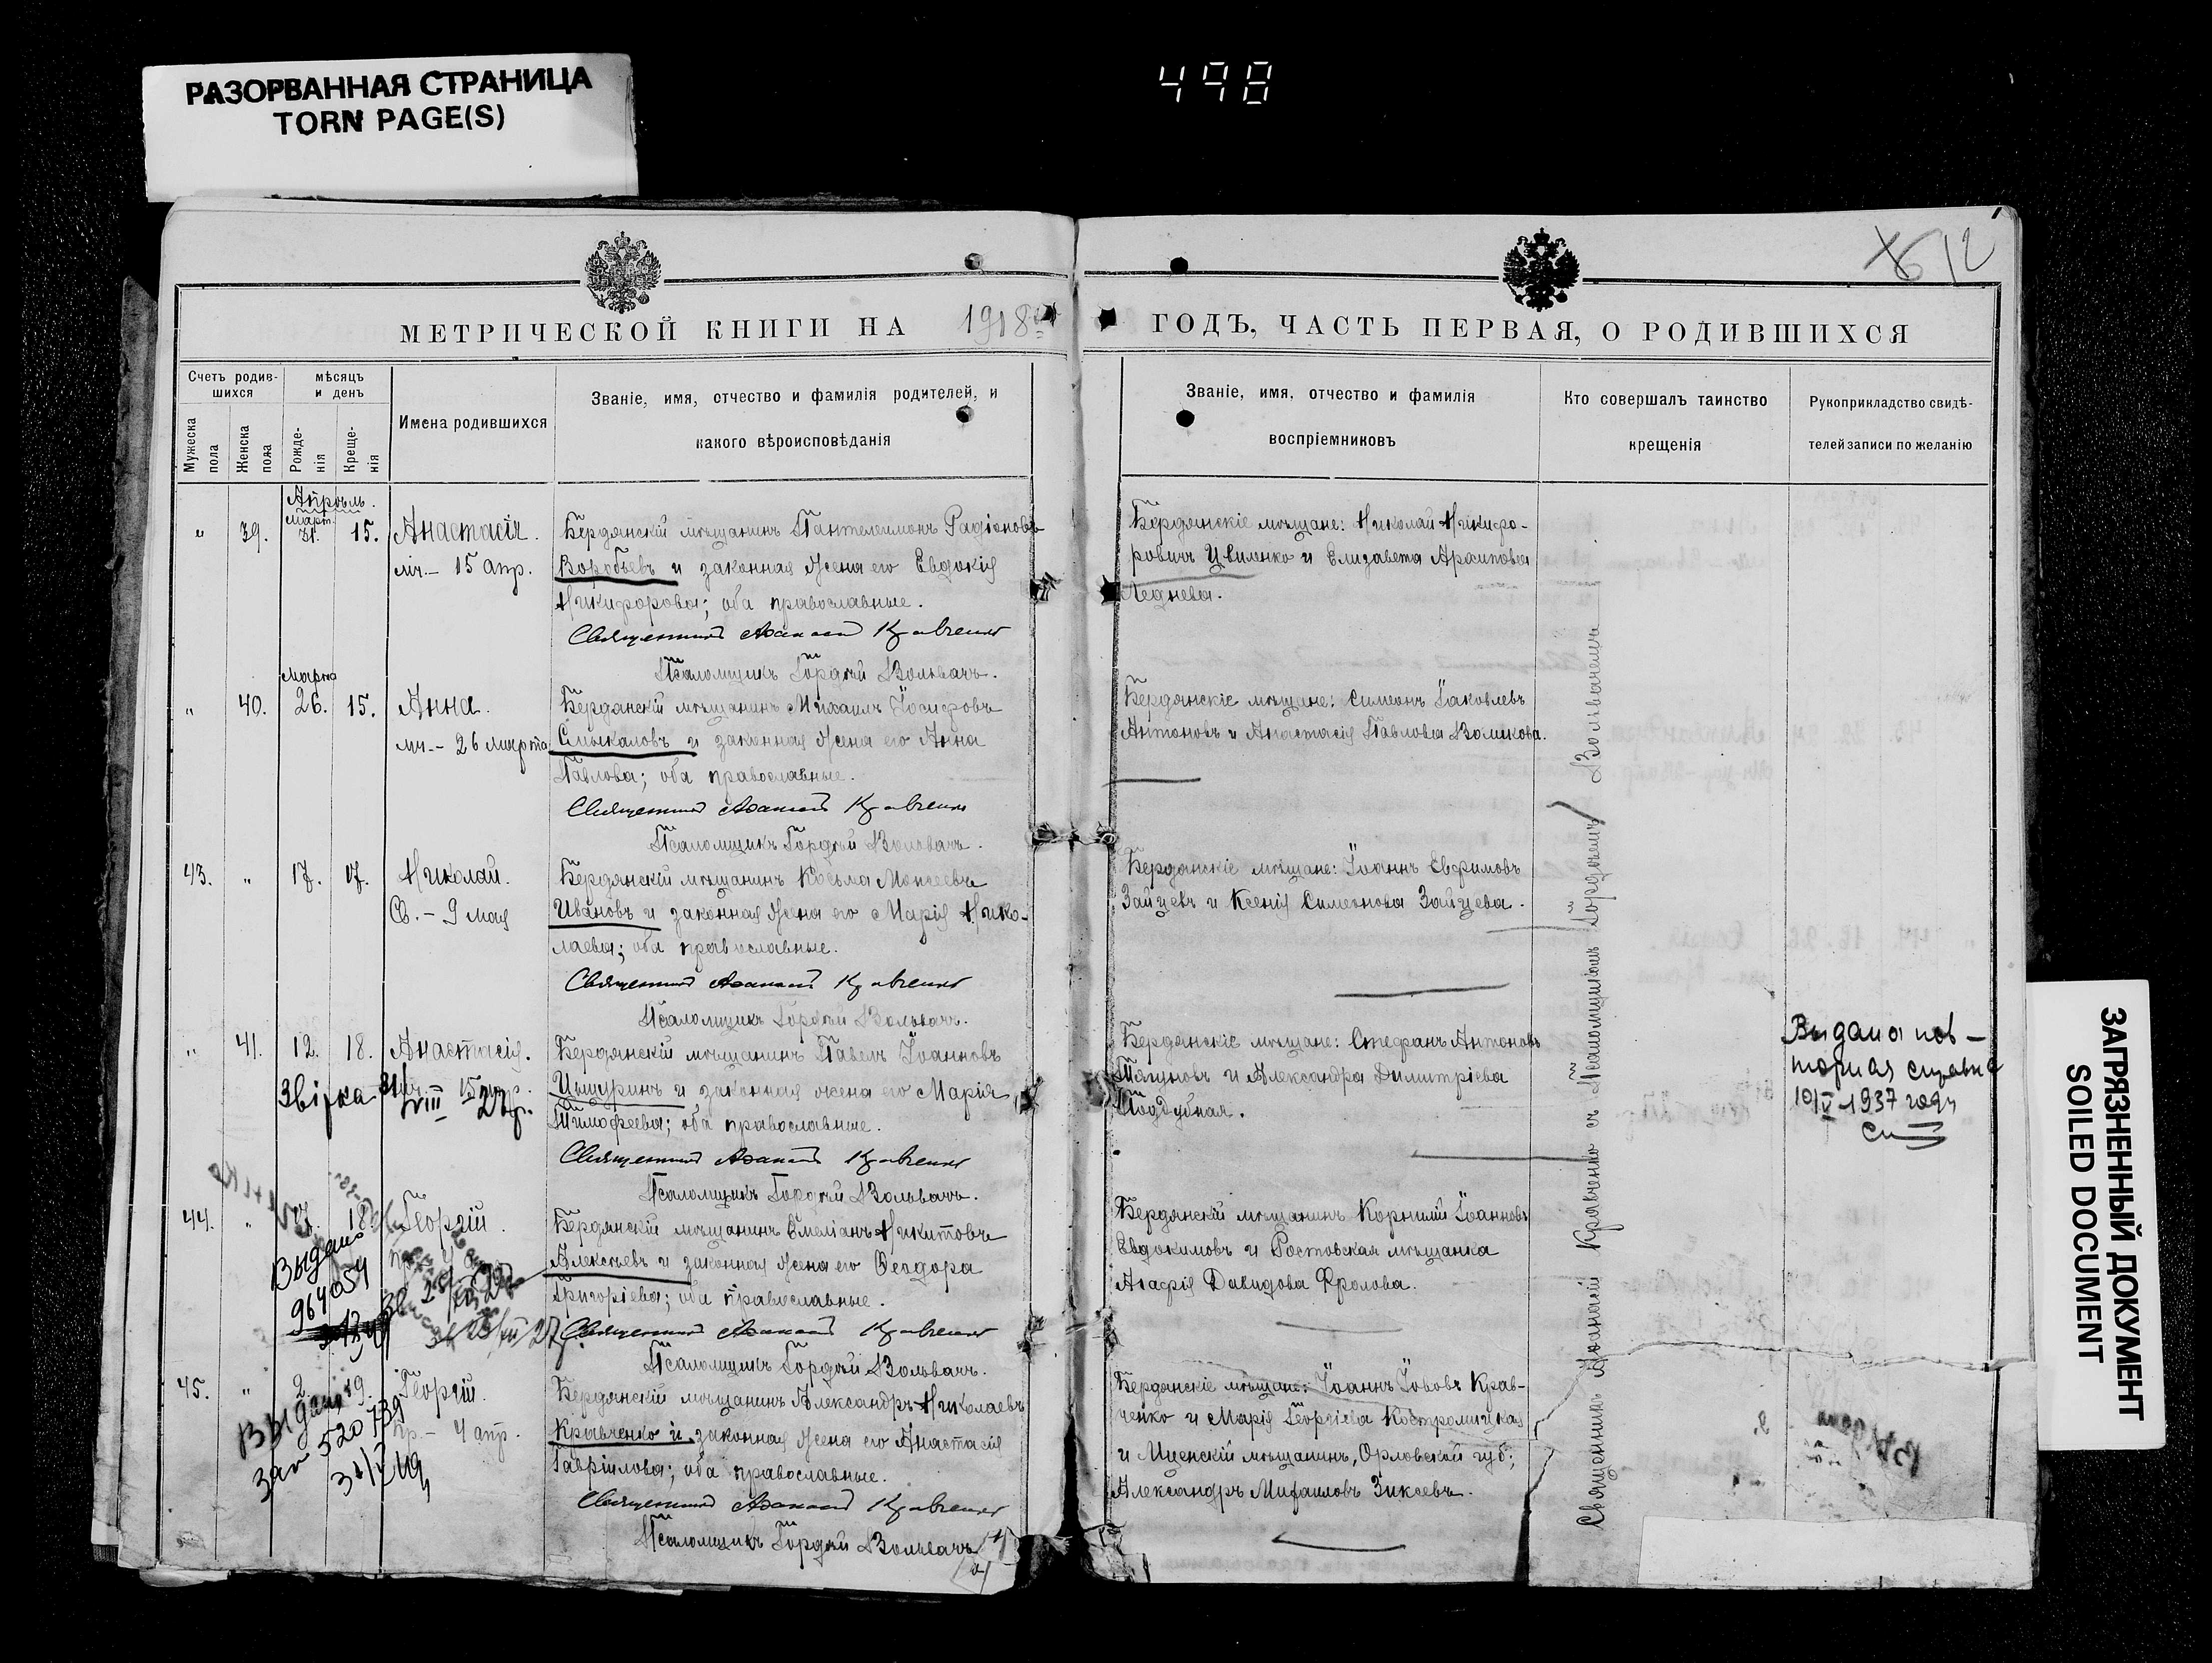 РАЗОРВАННАЯ СТРАНИЦА
TORN PAGE(S)
498
12
МЕТРИЧЕСКОЙ КНИГИ НА 1918
ГОДЪ, ЧАСТЬ ПЕРВАЯ, О РОДИВШИХСЯ
Счетъ родив-
шихся
Мужеска
пола
Женска
пола
мѣсяцъ
и день
Рожде-
нія
Креще-
нія
Имена родившихся
Званіе, имя, отчество и фамилія родителей, и
какого вѣроисповѣданія
Званіе, имя, отчество и фамилія
воспріемниковъ
Кто совершалъ таинство
крещенія
Рукоприкладство свидѣ-
телей записи по желанію
Апрѣль.
Март.
" 39. 31. 15. Анастасія.
мч.- 15 апр.
Бердянскій мѣщанинъ Пантелеимонъ Радіоновъ
Воробьевъ и законная жена его Евдокія
Никифорова; оба православные.
Священникъ Афанасій Кравченко
Псаломщикъ Гордѣй Вольвачъ.
Бердянскіе мѣщане: Николай Никифо-
ровичъ Цвиленко и Елизавета Архипова
Леднева.
Марта
" 40. 26. 15. Анна.
мч.- 26 марта
Бердянскій мѣщанинъ Михаилъ Іосифовъ
Смыкаловъ и законная жена его Анна
Павлова; оба православные.
Священникъ Афанасій Кравченко
Псаломщикъ Гордѣй Вольвачъ.
Бердянскіе мѣщане: Симеонъ Іаковлевъ
Антоновъ и Анастасія Павлова Воликова.
43. " 17. 17. Николай.
Св.- 9 мая
Бердянскій мѣщанинъ Косьма Моисеевъ
Ивановъ и законная жена его Марія Нико-
лаева; оба православные.
Священникъ Афанасій Кравченко
Псаломщикъ Гордѣй Вольвачъ.
Бердянскіе мѣщане: Іоаннъ Евфимовъ
Зайцевъ и Ксенія Симеонова Зайцева.
" 41. 12. 18. Анастасія.
15 апр.
Звірка
Бердянскій мѣщанинъ Павелъ Іоанновъ
Цыцуринъ и законная жена его Марія
Тимофеева; оба православные.
Священникъ Афанасій Кравченко
Псаломщикъ Гордѣй Вольвачъ.
Бердянскіе мѣщане: Стефанъ Антоновъ
Тягуновъ и Александра Димитріева
Поддубная.
Выдана пов-
торная справка
10/V 1937 года
44. " 18. Георгій.
Выдано
964054
Бердянскій мѣщанинъ Емеліанъ Никитовъ
Алексѣевъ и законная жена его Феодора
Григоріева; оба православные.
Священникъ Афанасій Кравченко
Псаломщикъ Гордѣй Вольвачъ.
Бердянскій мѣщанинъ Корнилій Іоанновъ
Евдокимовъ и Ростовская мѣщанка
Агафія Давидова Фролова.
45. " 2. 19. Георгій.
4 апр.
Выдано
520739
Бердянскій мѣщанинъ Александръ Николаевъ
Кравченко и законная жена его Анастасія
Гавріилова; оба православные.
Священникъ Афанасій Кравченко
Псаломщикъ Гордѣй Вольвачъ
Бердянскіе мѣщане: Іоаннъ Іововъ Крав-
ченко и Марія Георгіева Костромицкая
и Мценскій мѣщанинъ, Орловской губ;
Александръ Михаиловъ Зиксевъ.
Священникъ Афанасій Кравченко съ Псаломщикомъ Гордѣемъ Вольвачемъ
ЗАГРЯЗНЕННЫЙ ДОКУМЕНТ
SOILED DOCUMENT